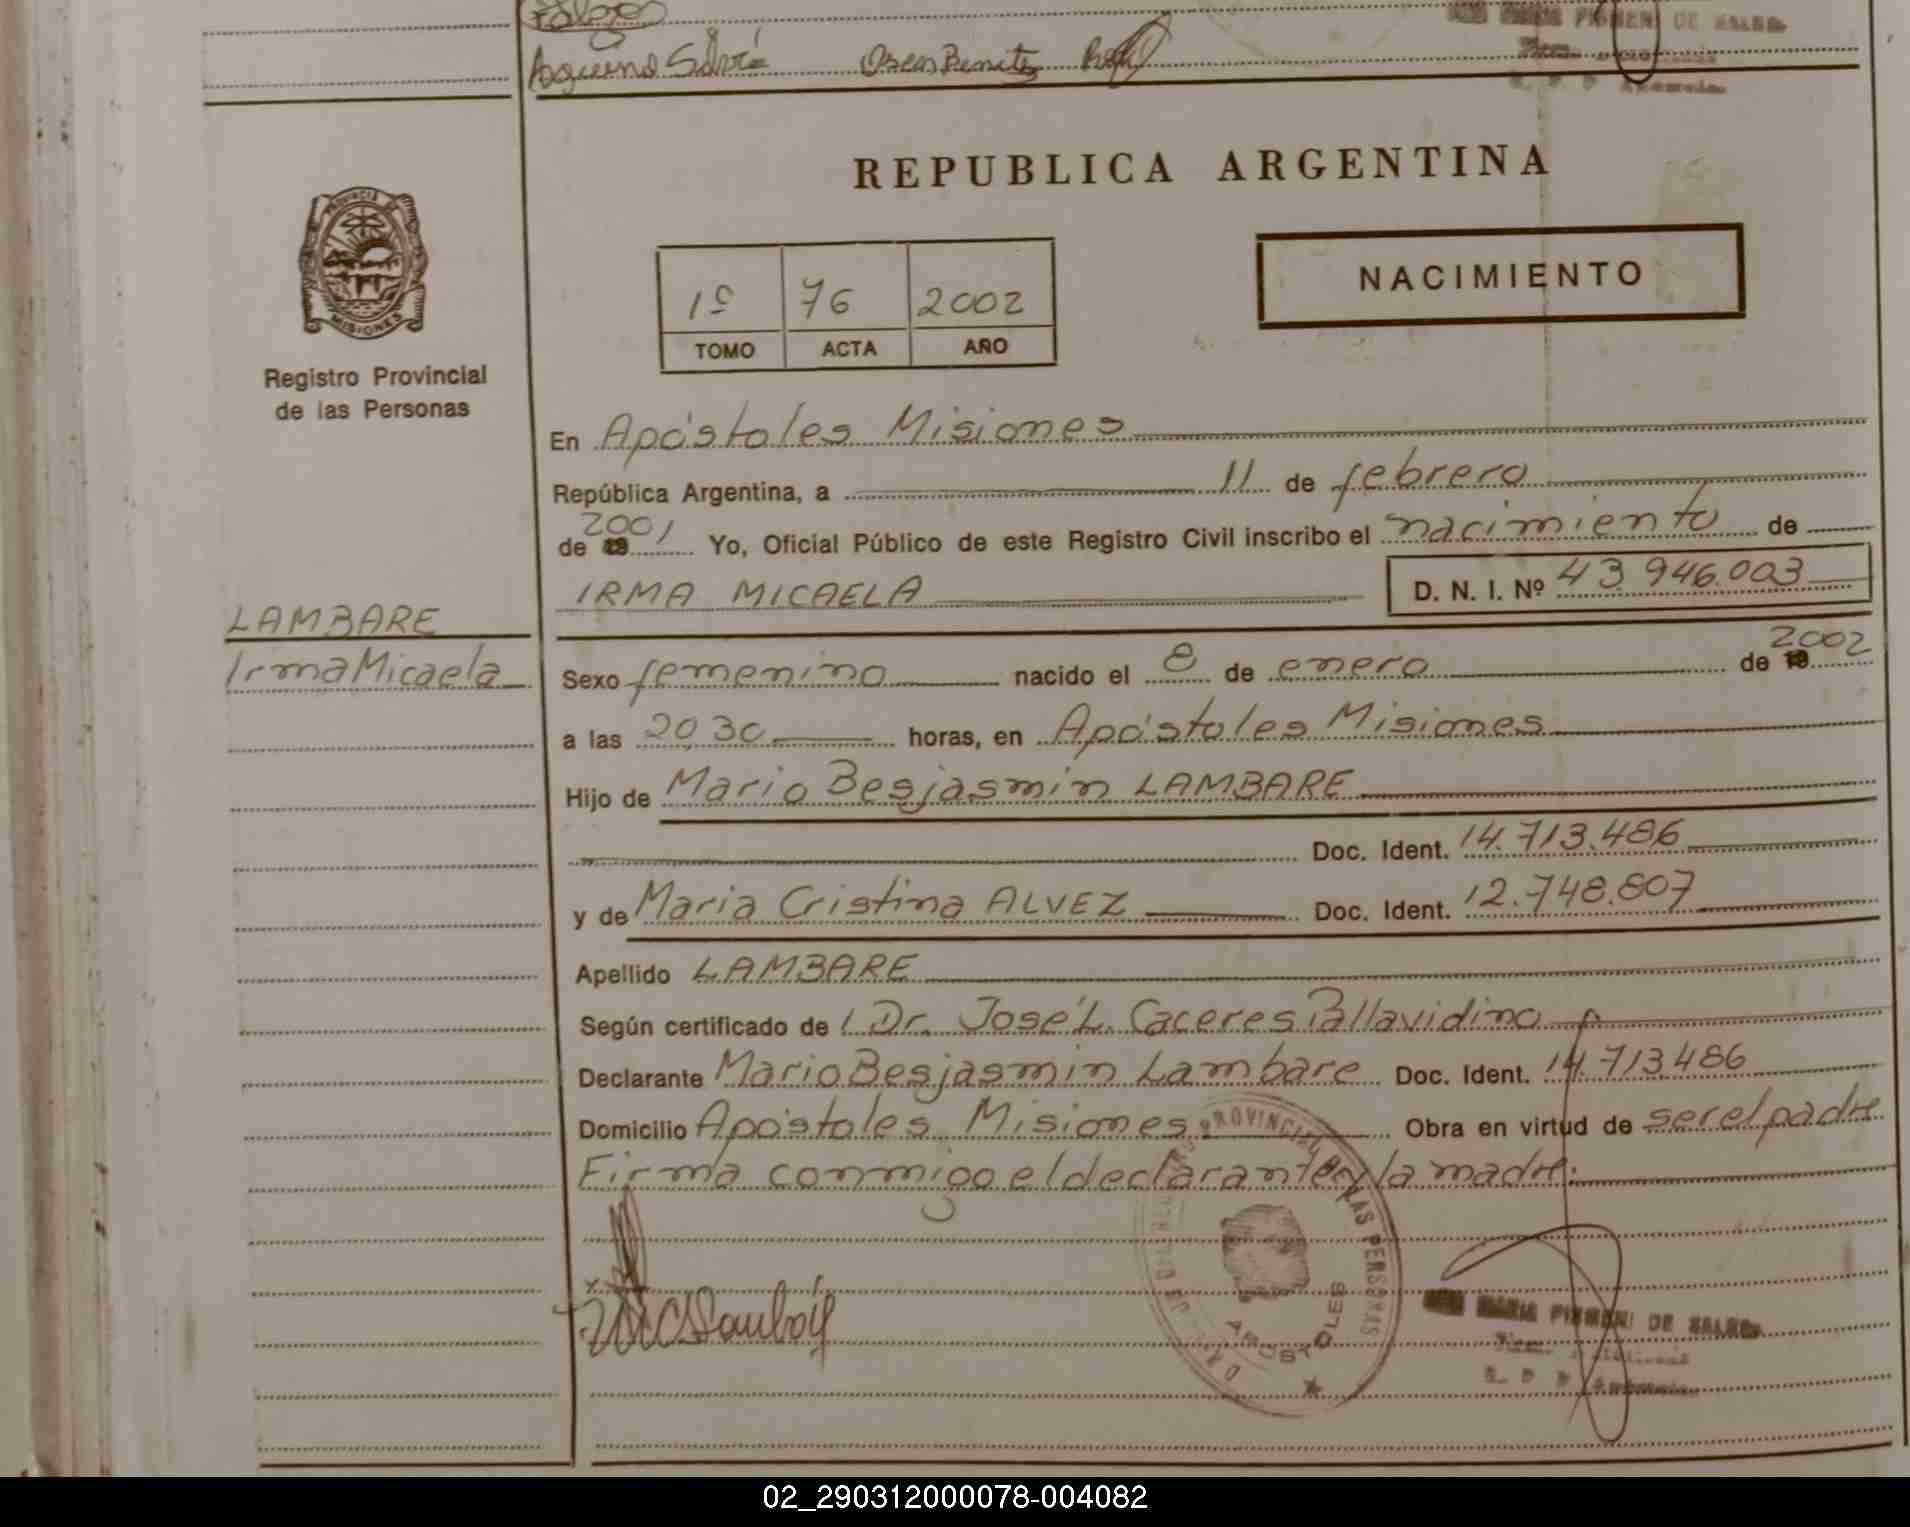 Aquino Silvia Oscar Benitez
REPUBLICA ARGENTINA
PROVINCIA DE
MISIONES
Registro Provincial
de las Personas
NACIMIENTO
1º 76 2002
TOMO ACTA AÑO
En Apóstoles Misiones
República Argentina, a 11 de febrero
de 2001 Yo, Oficial Público de este Registro Civil inscribo el nacimiento de
IRMA MICAELA D. N. I. Nº 43.946.003
LAMBARE
Irma Micaela
Sexo femenino nacido el 8 de enero de 2002
a las 20,30 horas, en Apóstoles Misiones
Hijo de Mario Besjasmin LAMBARE
Doc. Ident. 14.713.486
y de Maria Cristina ALVEZ Doc. Ident. 12.748.807
Apellido LAMBARE
Según certificado de Dr. José L. Caceres Pallavidino
Declarante Mario Besjasmin Lambare Doc. Ident. 14.713.486
Domicilio Apóstoles Misiones Obra en virtud de ser el padre
Firma conmigo el declarante y la madre.
PROVINCIAL DE LAS PERSONAS
APOSTOLES
MARIA PIRMENI DE
02_290312000078-004082